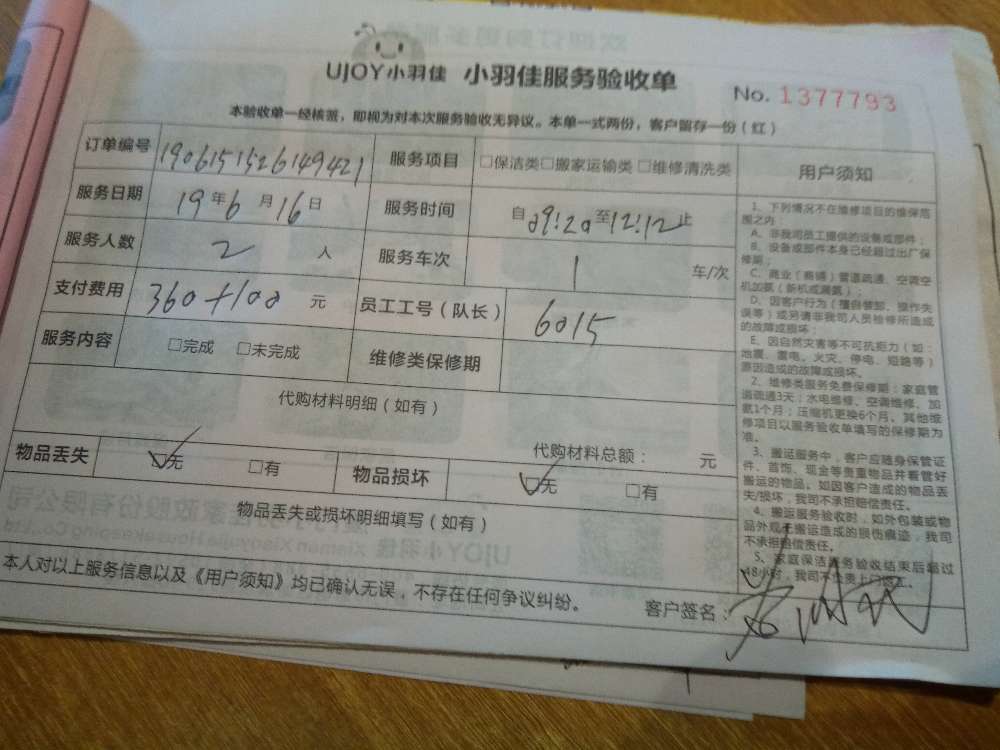 UJOY小羽佳 小羽佳服务验收单
No. 1377793
本验收单一经核签，即视为对本次服务验收无异议。本单一式两份，客户留存一份（红）
订单编号 190615152614942​1 服务项目 □保洁类□搬家运输类 □维修清洗类
服务日期 19年6月16日 服务时间 自09:20至12:12止
服务人数 2 人 服务车次 1 车/次
支付费用 360+100 元 员工工号（队长） 6015
服务内容 □完成 □未完成 维修类保修期
代购材料明细（如有）
代购材料总额： 元
物品丢失 ☑无 □有 物品损坏 ☑无 □有
物品丢失或损坏明细填写（如有）
本人对以上服务信息以及《用户须知》均已确认无误，不存在任何争议纠纷。
客户签名：
用户须知
1、下列情况不在维修项目的维保范
围之内：
A、非我司员工提供的设备或部件；
B、设备或部件本身已经超过出厂保
修期；
C、商业（商铺）管道疏通、空调空
机加氨（新机或漏氨）；
D、因客户行为（擅自装卸、操作失
误等）或另请非我司人员检修所造成
的故障或损坏；
E、因自然灾害等不可抗拒力（如：
地震、雷电、火灾、停电、短路等）
原因造成的故障或损坏。
2、维修类服务免费保修期：家庭管
道疏通3天；水电维修、空调维修、加
氨1个月；压缩机更换6个月。其他维
修项目以服务验收单填写的保修期为
准。
3、搬运服务中，客户应随身保管证
件、首饰、现金等贵重物品并看管好
搬运的物品。如因客户造成的物品丢
失/损坏，我司不承担赔偿责任。
4、搬运服务验收时，如外包装或物
品外观无搬运造成的损伤痕迹，我司
不承担赔偿责任。
5、家庭保洁服务验收结束后超过
48小时，我司不负责上门返工。